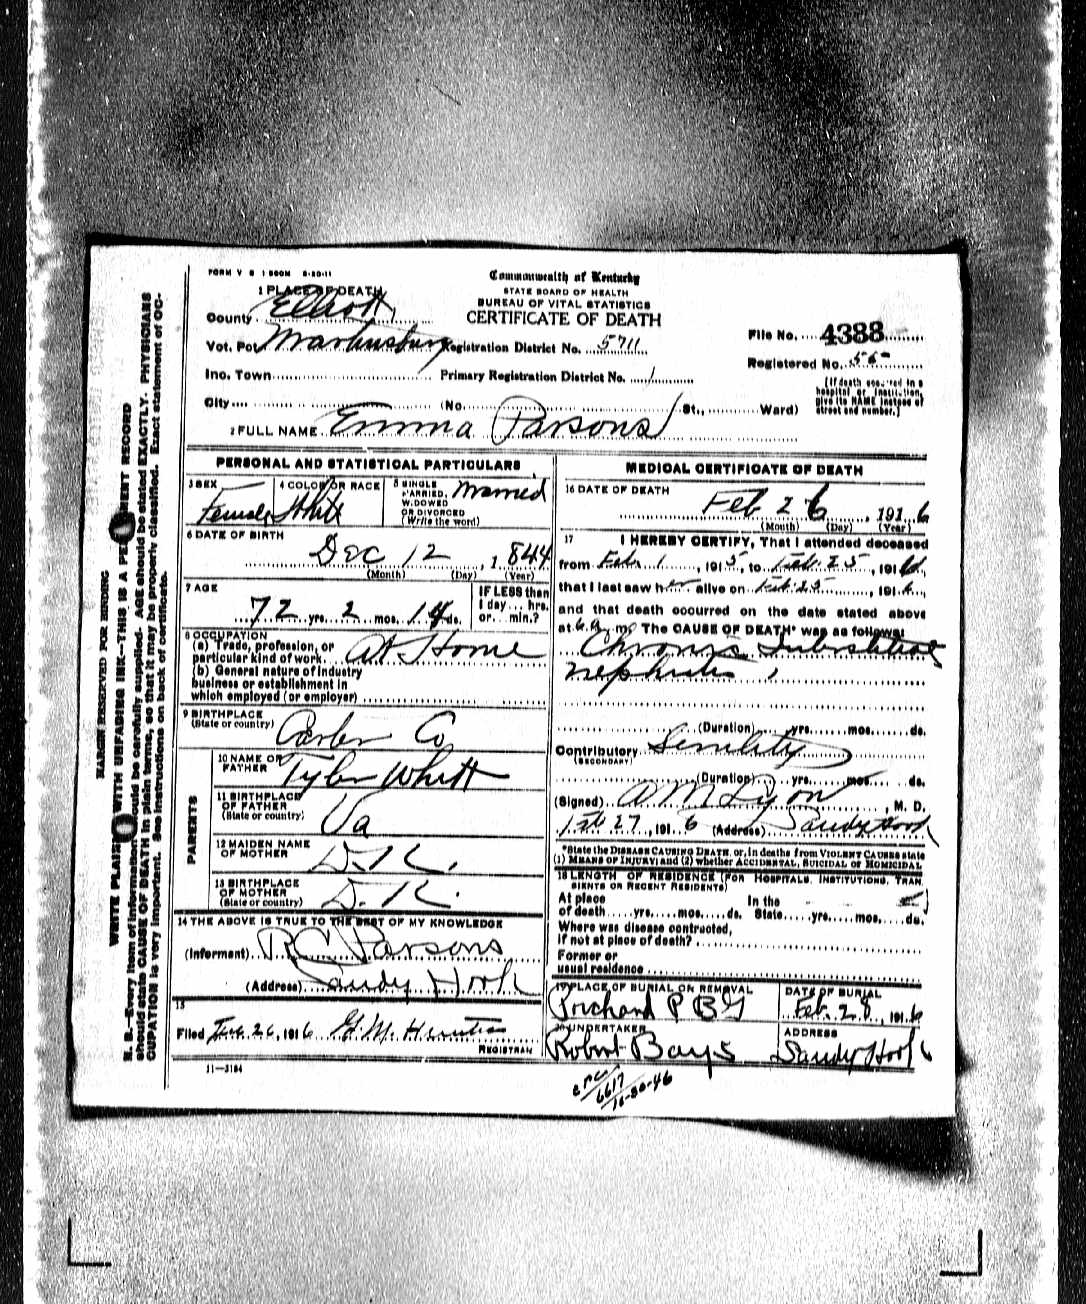 FORM V S 1 500M 8-20-11
Commonwealth of Kentucky
STATE BOARD OF HEALTH
BUREAU OF VITAL STATISTICS
CERTIFICATE OF DEATH
1 PLACE OF DEATH
County Elliott
Vot. Pct Martinsburg Registration District No. 5711
File No. 4388
Registered No. 56
Ino. Town Primary Registration District No. 1
City (No. St., Ward)
[If death occurred in a
hospital or institution,
give its NAME instead of
street and number.]
2 FULL NAME Emma Parsons
PERSONAL AND STATISTICAL PARTICULARS
3 SEX Female
4 COLOR OR RACE White
5 SINGLE
MARRIED,
WIDOWED
OR DIVORCED
(Write the word) Married
6 DATE OF BIRTH
Dec 12, 1844
(Month) (Day) (Year)
7 AGE
72 yrs. 2 mos. 14 ds.
IF LESS than
1 day... hrs.
or... min.?
8 OCCUPATION
(a) Trade, profession, or
particular kind of work. At Home
(b) General nature of industry
business or establishment in
which employed (or employer)
9 BIRTHPLACE
(State or country) Carter Co
PARENTS
10 NAME OF
FATHER Tyler Whitt
11 BIRTHPLACE
OF FATHER
(State or country) Va
12 MAIDEN NAME
OF MOTHER D.K.
13 BIRTHPLACE
OF MOTHER
(State or country) D.K.
14 THE ABOVE IS TRUE TO THE BEST OF MY KNOWLEDGE
(Informant) R C Parsons
(Address) Sandy Hook
15
Filed Feb. 26, 1916 G. M.
REGISTRAR
11-3184
MEDICAL CERTIFICATE OF DEATH
16 DATE OF DEATH
Feb 26, 1916
(Month) (Day) (Year)
17 I HEREBY CERTIFY, That I attended deceased
from Feb. 1, 1915, to Feb. 25, 1916,
that I last saw her alive on Feb. 25, 1916,
and that death occurred on the date stated above
at 6 a m. The CAUSE OF DEATH* was as follows:
Chronic Interstitial
nephritis
(Duration) yrs. mos. ds.
Contributory Senility
(SECONDARY)
(Duration) yrs. mos. ds.
(Signed) A M Lyon, M. D.
Feb 27, 1916 (Address) Sandy Hook
*State the DISEASE CAUSING DEATH, or, in deaths from VIOLENT CAUSES state
(1) MEANS OF INJURY; and (2) whether ACCIDENTAL, SUICIDAL OR HOMICIDAL
18 LENGTH OF RESIDENCE (FOR HOSPITALS, INSTITUTIONS, TRAN
SIENTS OR RECENT RESIDENTS)
At place In the
of death yrs. mos. ds. State yrs. mos. ds.
Where was disease contracted,
if not at place of death?
Former or
usual residence
19 PLACE OF BURIAL OR REMOVAL
Prichard P B G
DATE OF BURIAL
Feb. 28, 1916
20 UNDERTAKER
Robert Bays
ADDRESS
Sandy Hook
6617
10-30-46
MARGIN RESERVED FOR BINDING
WRITE PLAINLY WITH UNFADING INK—THIS IS A PERMANENT RECORD
N. B.—Every item of information should be carefully supplied. AGE should be stated EXACTLY. PHYSICIANS
should state CAUSE OF DEATH in plain terms, so that it may be properly classified. Exact statement of OC-
CUPATION is very important. See instructions on back of certificate.